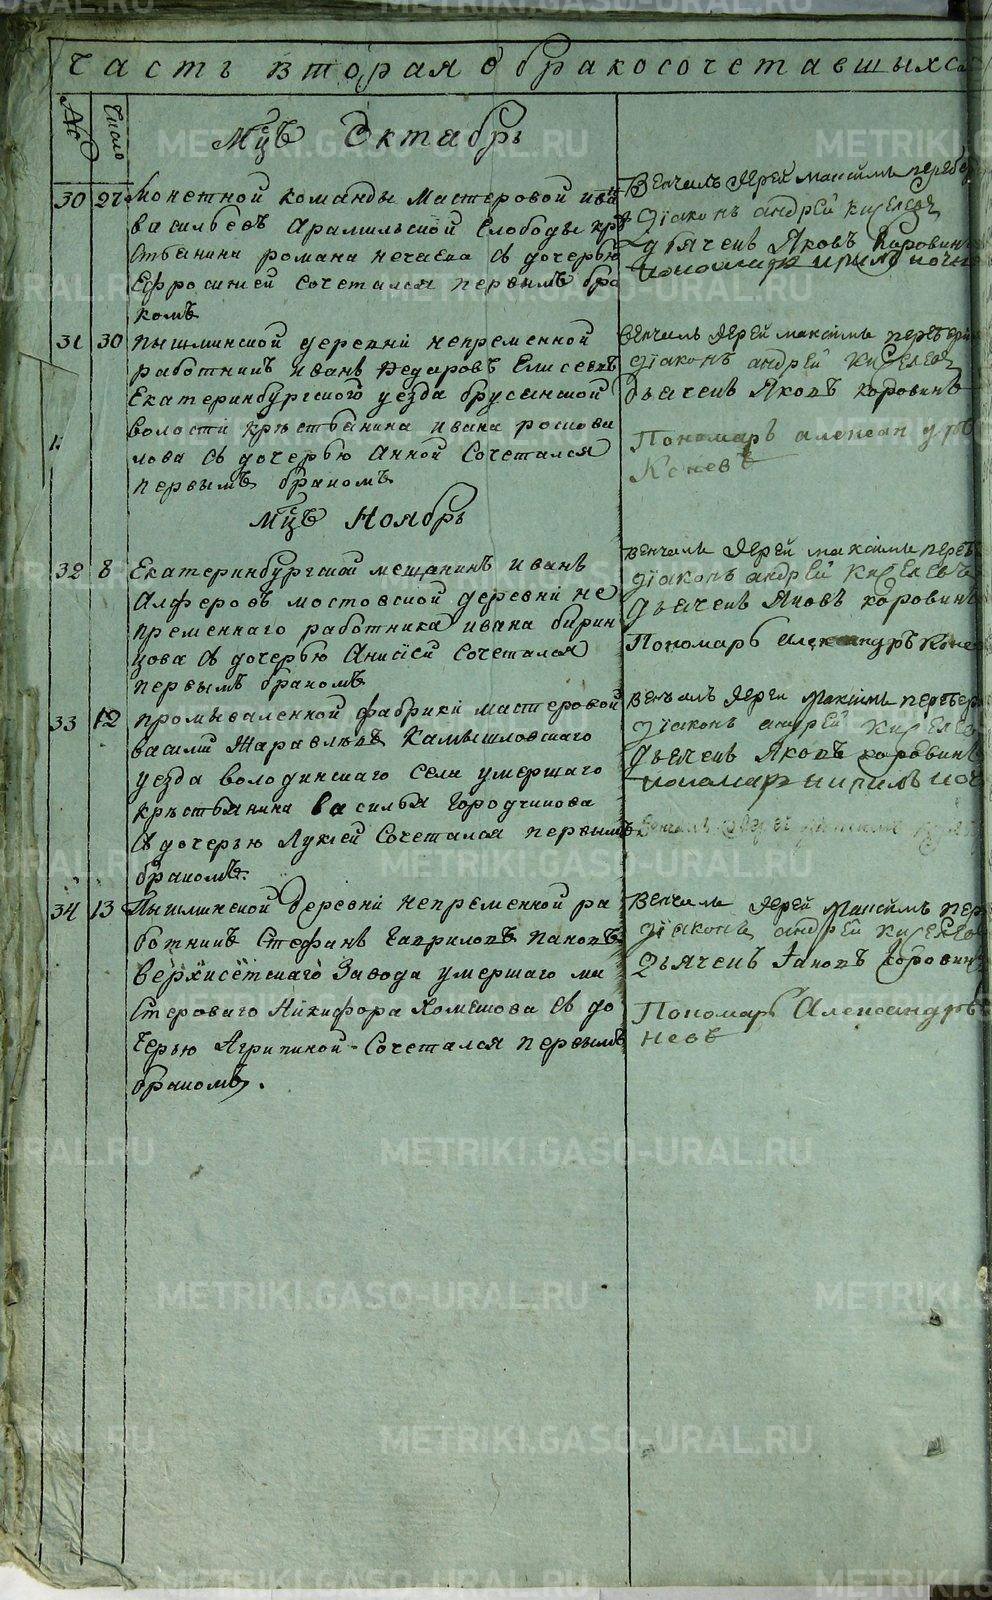 Часть вторая о бракосочетавшыхся
№ Число
Мцъ Октябрь
30 27 Монетной команды Мастеровой ива
васильевъ Арамильской Слободы кр
стьянина романа нечаева съ дочерью
Ефросиніей сочетался первымъ бра
комъ
Венчалъ Іерей максимъ
Діаконъ андрей киселевъ
дьячекъ Яковъ Коровинъ
пономарь
31 30 пышминской деревни непременной
работникъ иванъ Федаровъ Елисеевъ
Екатеринбургского уезда брусянской
волости крѣстьянина ивана
лова съ дочерью Анной Сочетался
первымъ бракомъ
венчалъ Іерей максимъ
діаконъ андрей Киселевъ
дьячекъ Яковъ коровинъ
Пономарь алексан дръ
Коневъ
Мцъ Ноябрь
32 8 Екатеринбургской мещанинъ иванъ
Алферовъ мостовской деревни не
пременнаго работника ивана бирин
цова съ дочерью Анисіей сочетался
первымъ бракомъ
венчалъ Іерей максимъ
діаконъ андрей Киселевъ
дьячекъ Яковъ коровинъ
Пономарь Александръ Коне
33 12 промываленной фабрики мастеровой
василий Жаравлевъ Камышловскаго
уезда володинскаго села умершаго
крѣстьянина василья Городчикова
съ дочерью Лукіей Сочетался первымъ
бракомъ.
Венчалъ Іерей Максимъ
діаконъ андрей Киселевъ
дьячекъ Яковъ коровинъ
пономарь
Венчалъ Іерей
34 13 Пышминской деревни непременной ра
ботникъ Стефанъ Гавриловъ пановъ
верхисетскаго Завода умершаго ма
стероваго Никифора Хомякова съ до
черью Агрипиной Сочетался первымъ
бракомъ.
Венчалъ Іерей Максимъ пер
діаконъ андрей киселев
Дьячекъ Іаковъ Коровин
Пономарь Александръ
невъ
METRIKI.GASO-URAL.RU